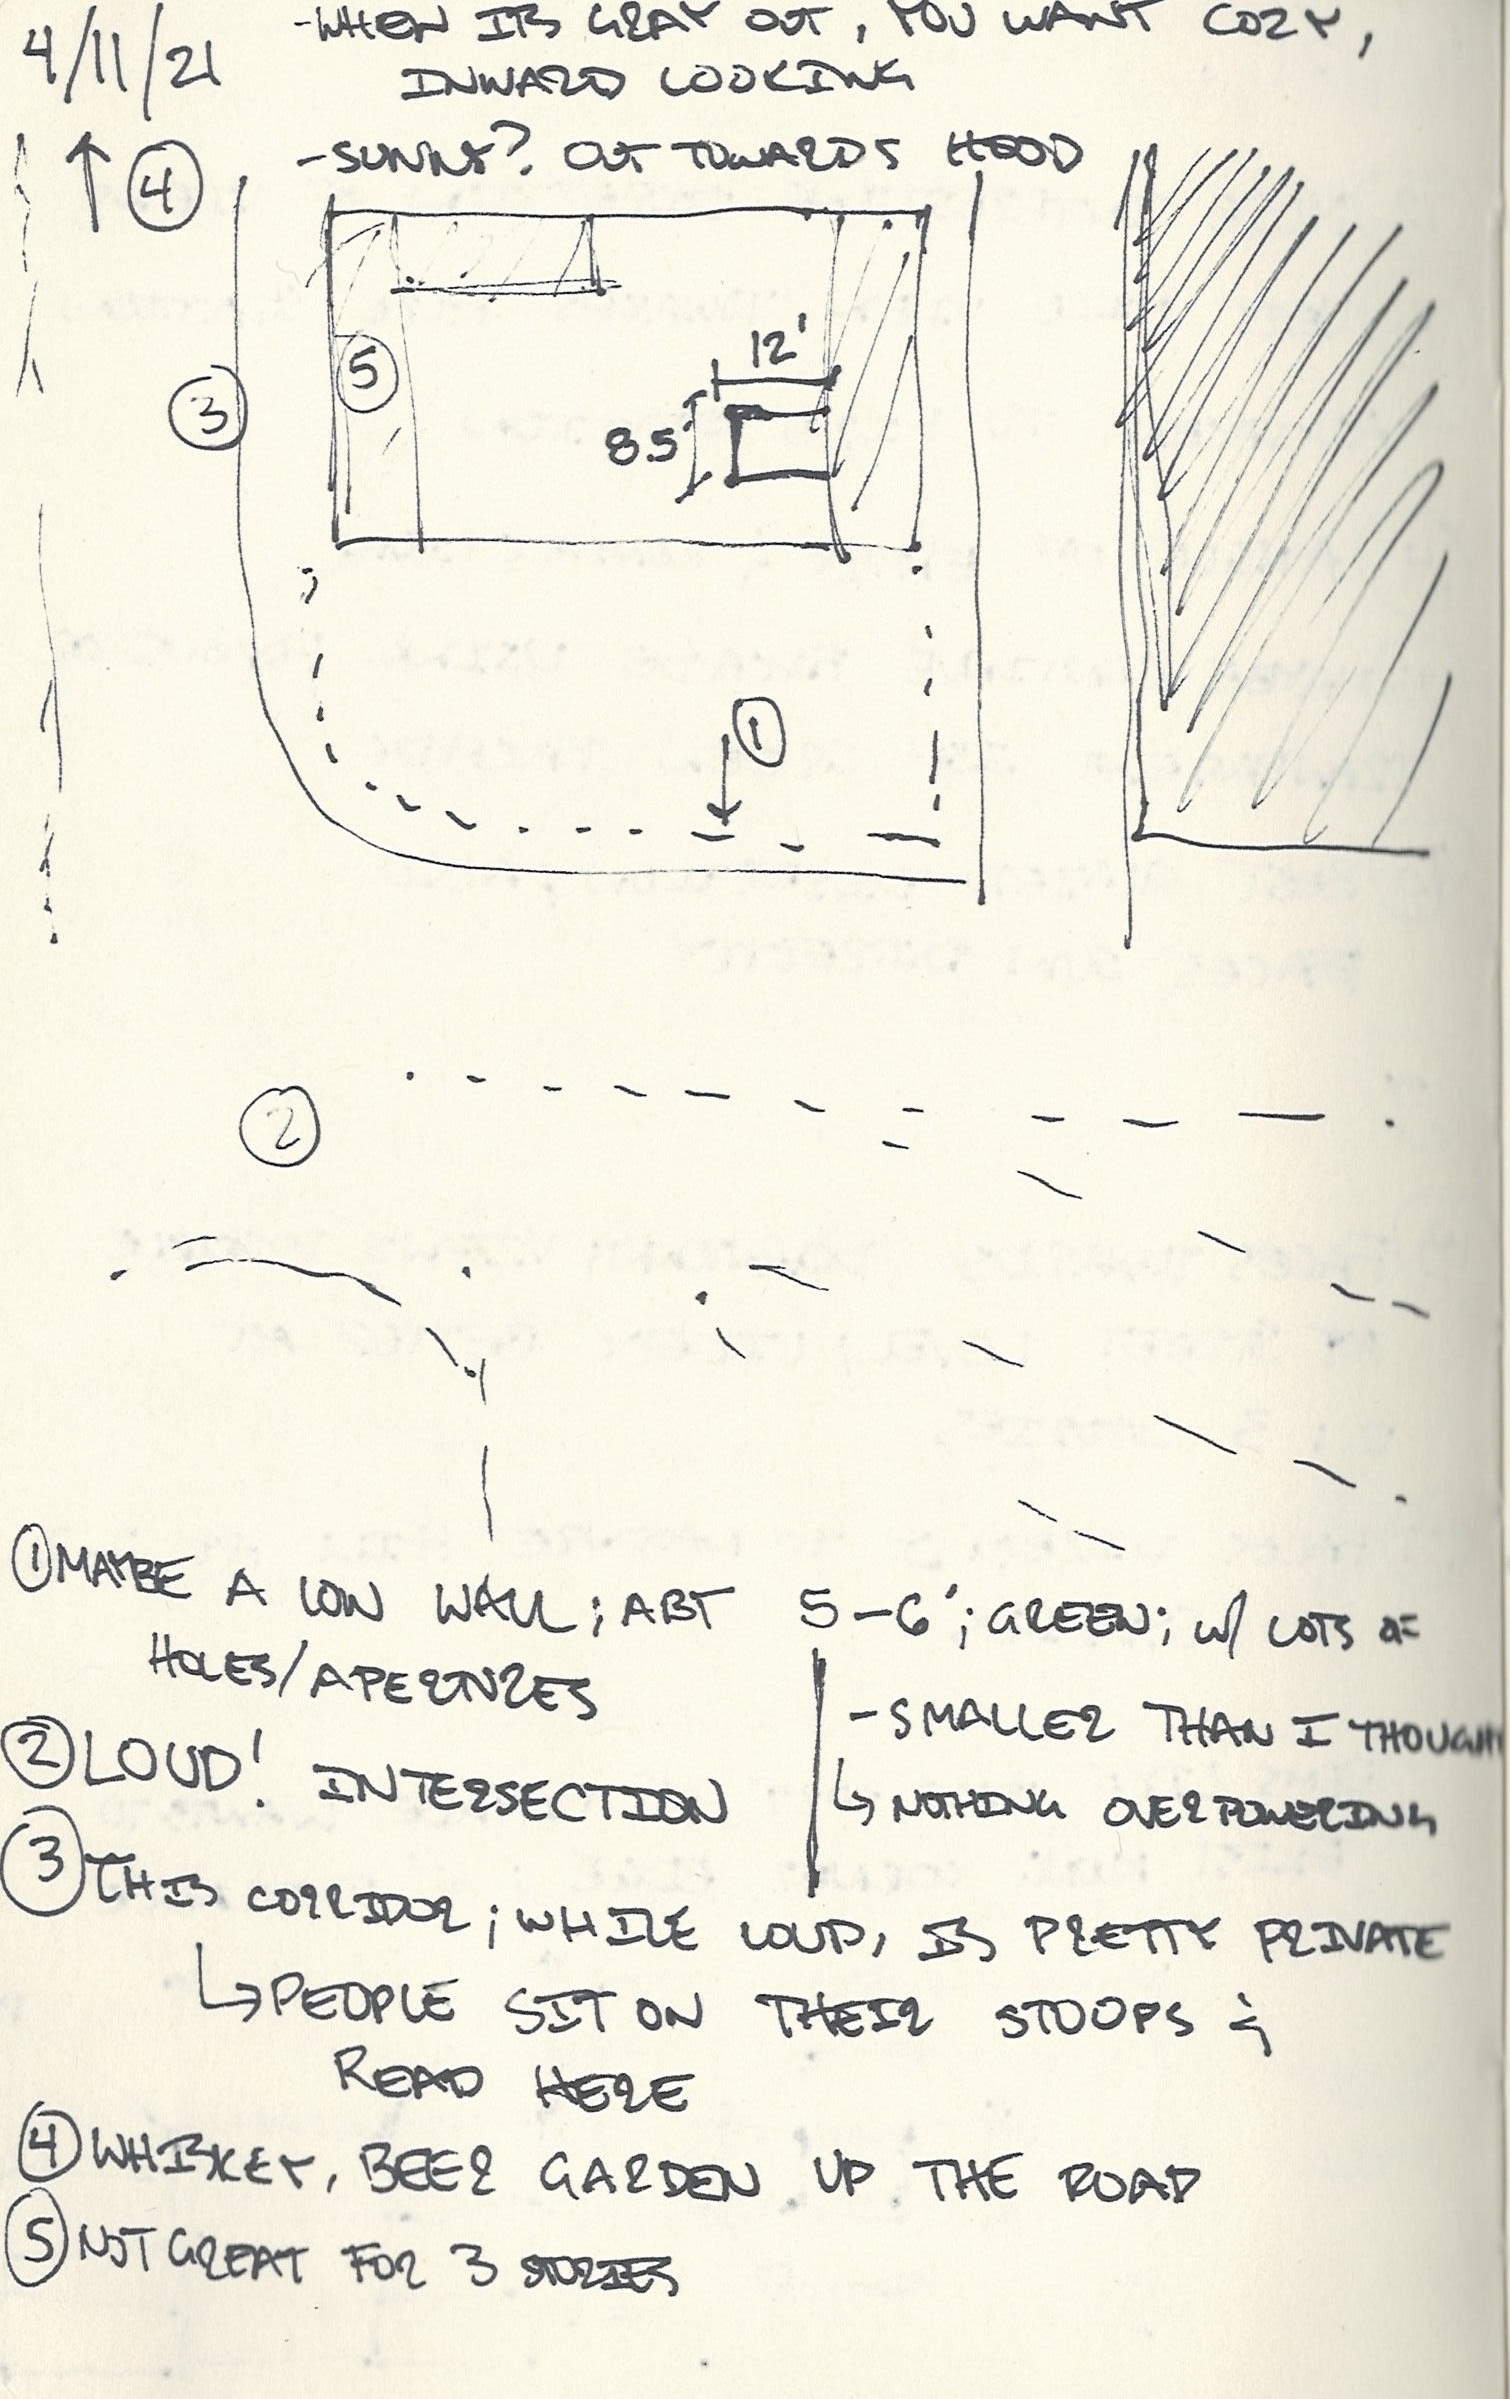 4/11/21
-WHEN IT'S GRAY OUT, YOU WANT COZY,
INWARD LOOKING
-SUNNY? OUT TOWARDS HOOD
4
3
5
12'
8.5'
1
2
① MAYBE A LOW WALL; ABT 5-6'; GREEN; W/ LOTS OF
HOLES/APERTURES
② LOUD! INTERSECTION
-SMALLER THAN I THOUGHT
↳ NOTHING OVERPOWERING
③ THIS CORRIDOR; WHILE LOUD, IS PRETTY PRIVATE
↳ PEOPLE SIT ON THEIR STOOPS &
READ HERE
④ WHISKEY, BEER GARDEN UP THE ROAD
⑤ NOT GREAT FOR 3 STORIES